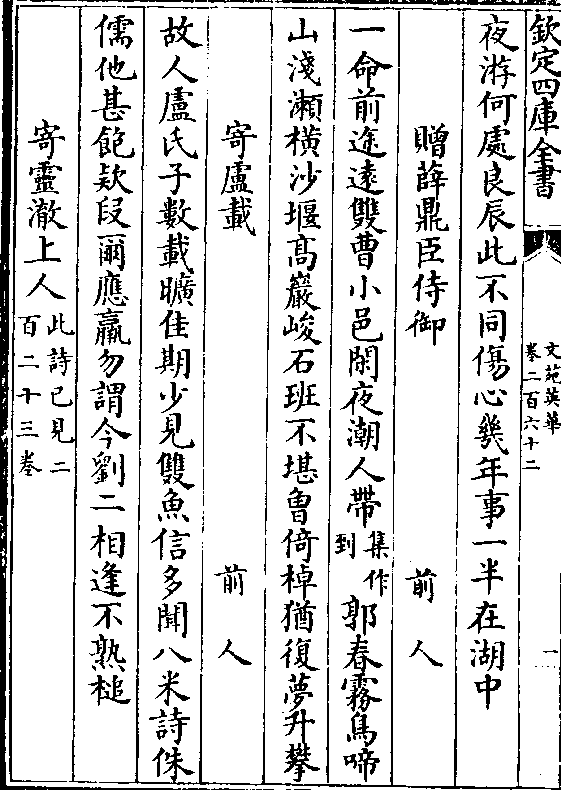 欽定四庫全書
文苑英華
卷二百六十二
一
夜游何處良辰此不同傷心幾年事一半在湖中
贈薛鼎臣侍御 前人
一命前途遠雙曹小邑閑夜潮人帶集作到郭春霧鳥啼
山淺瀨橫沙堰高巖峻石班不堪曾倚棹猶復夢升攀
寄盧載 前人
故人盧氏子數載曠佳期少見雙魚信多聞八米詩侏
儒他甚飽欵段爾應羸勿謂今劉二相逢不熟槌
寄靈澈上人此詩已見二百二十三卷